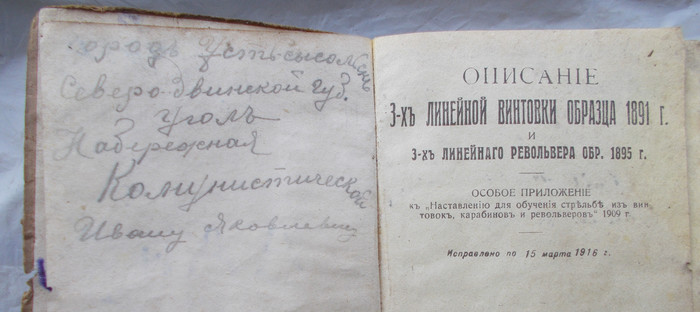 городъ Усть-сысольскъ
Северо-Двинской губ.
уголъ
Набережная
Комунистической
Ивану Яковлевичу
ОПИСАНІЕ
3-хъ ЛИНЕЙНОЙ ВИНТОВКИ ОБРАЗЦА 1891 г.
и
3-хъ ЛИНЕЙНАГО РЕВОЛЬВЕРА ОБР. 1895 г.
ОСОБОЕ ПРИЛОЖЕНІЕ
къ „Наставленію для обученія стрѣльбѣ изъ вин
товокъ, карабиновъ и револьверовъ" 1909 г.
Исправлено по 15 марта 1916 г.